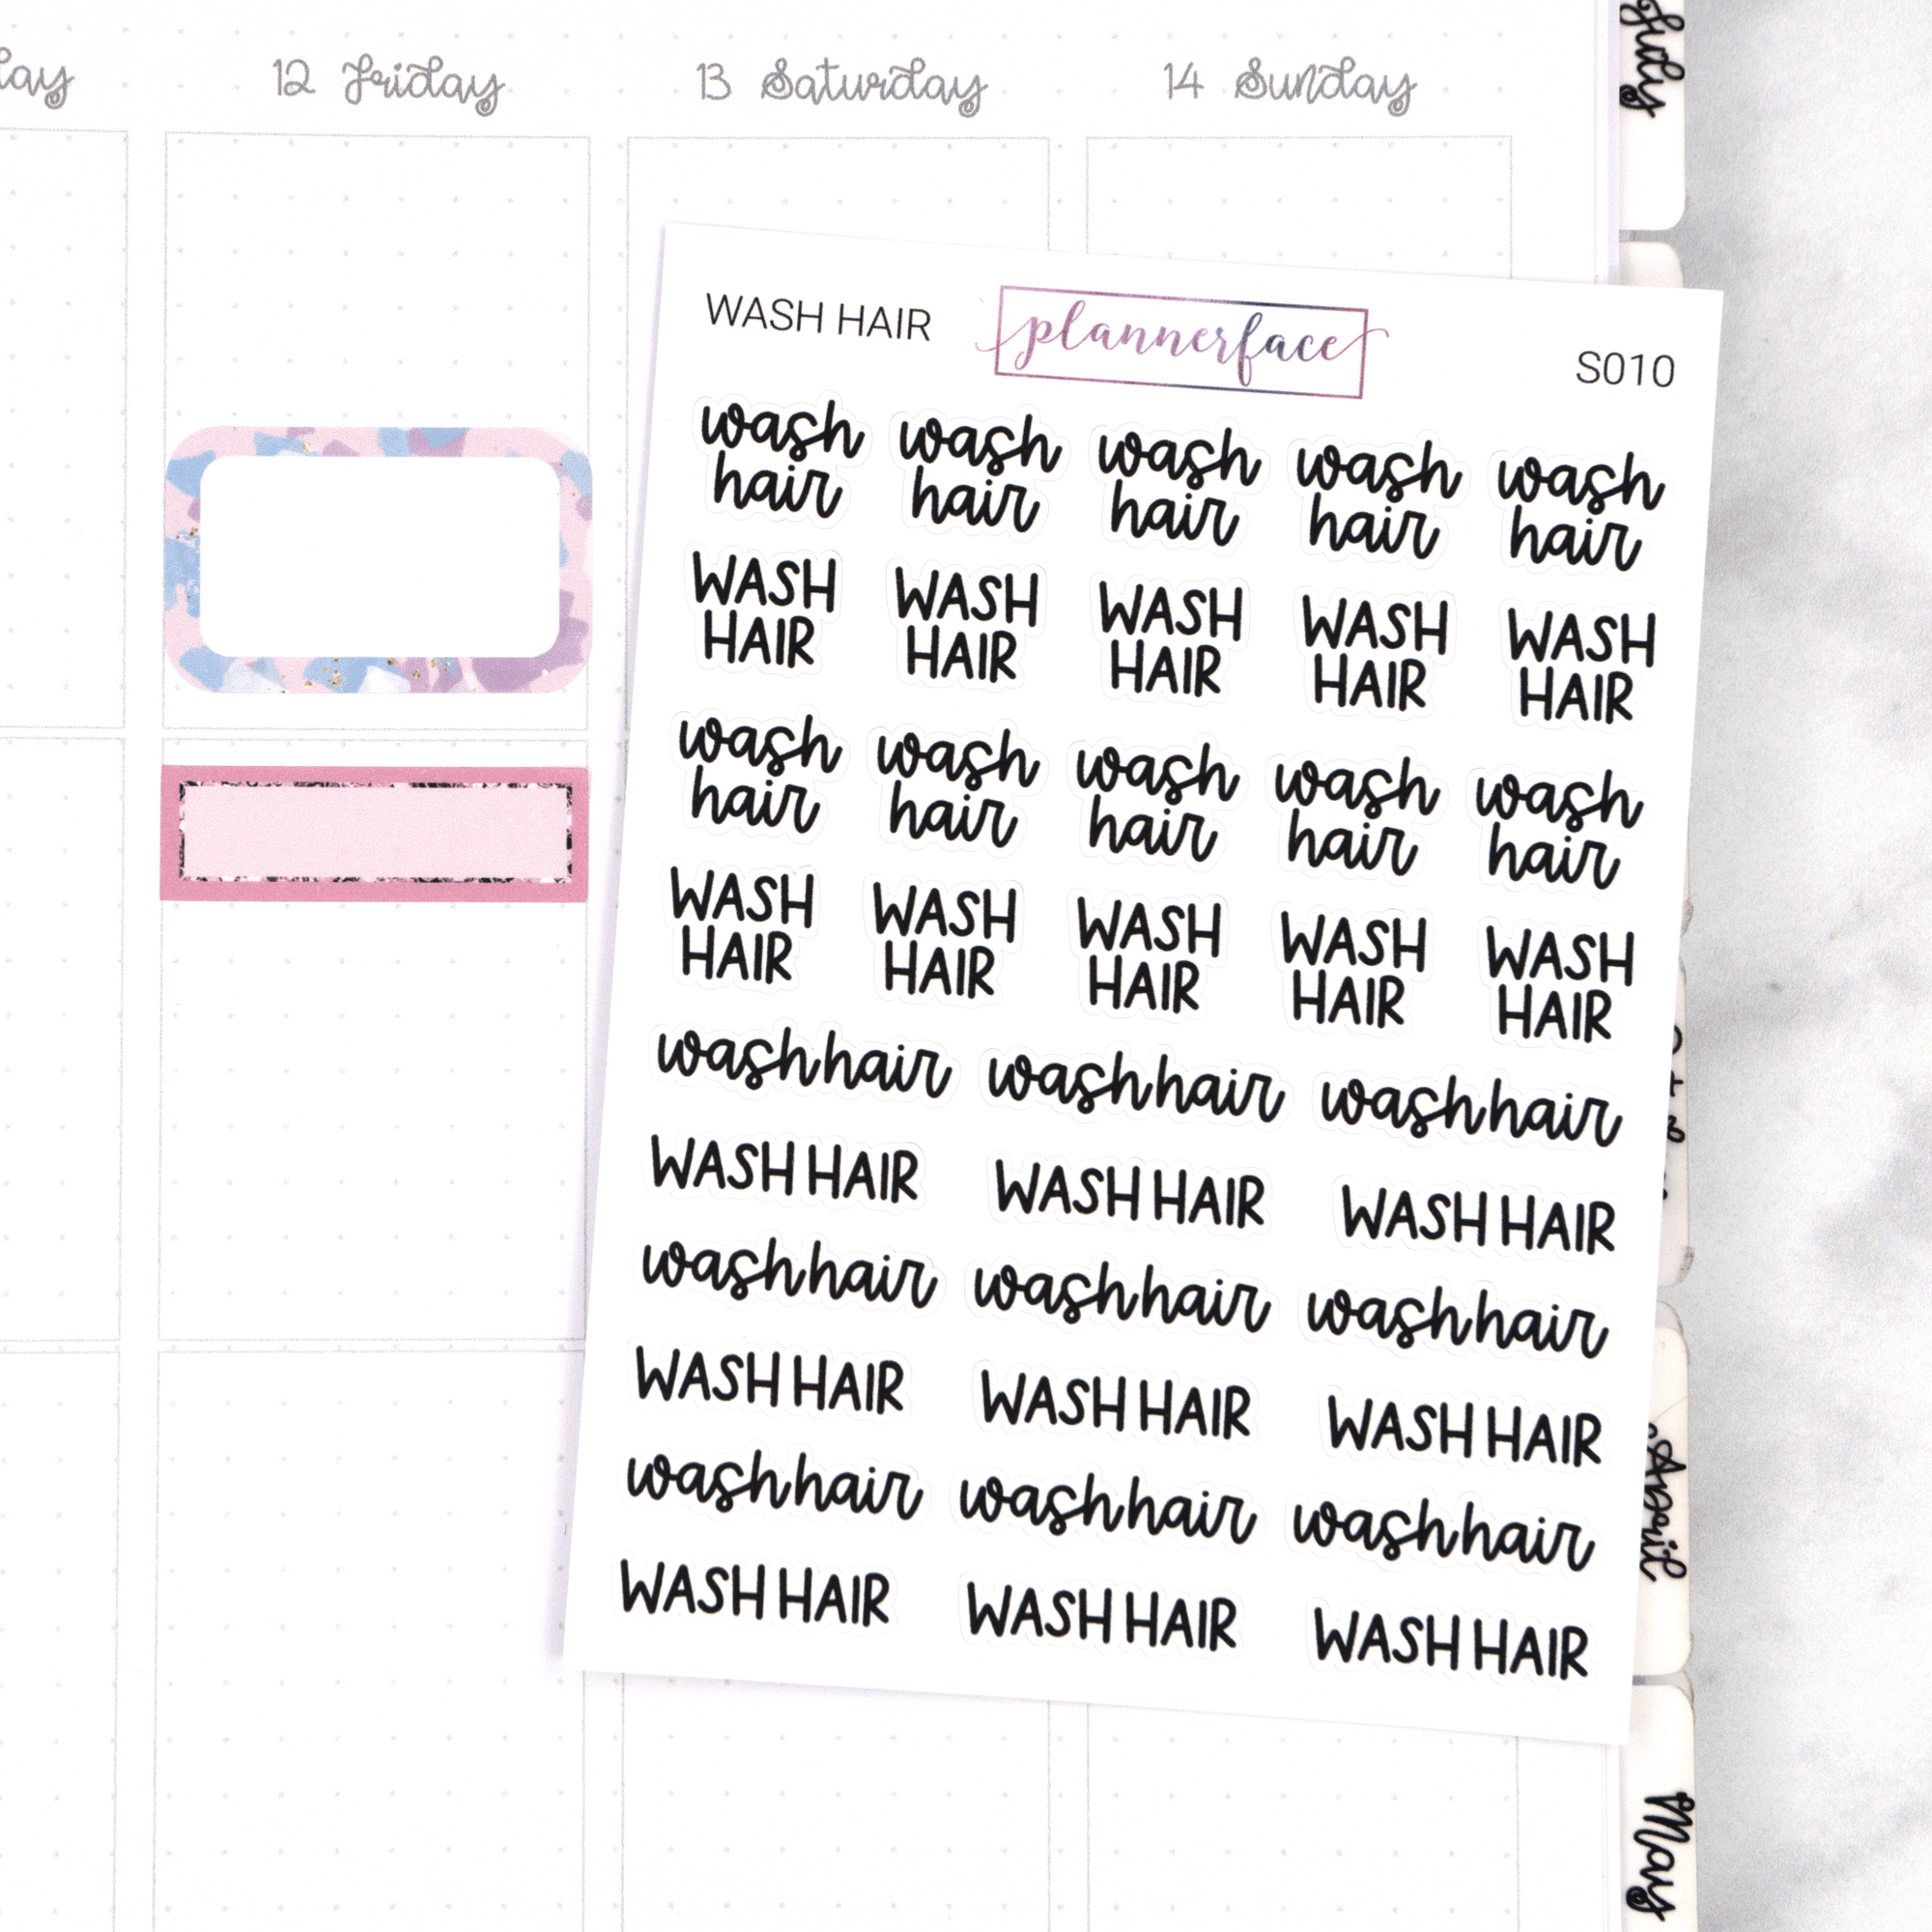 12 Friday 13 Saturday 14 Sunday
July
WASH HAIR plannerface S010
wash wash wash wash wash
hair hair hair hair hair
WASH WASH WASH WASH WASH
HAIR HAIR HAIR HAIR HAIR
wash wash wash wash wash
hair hair hair hair hair
WASH WASH WASH WASH WASH
HAIR HAIR HAIR HAIR HAIR
wash hair wash hair wash hair
WASH HAIR WASH HAIR WASH HAIR
wash hair wash hair wash hair
WASH HAIR WASH HAIR WASH HAIR
wash hair wash hair wash hair
WASH HAIR WASH HAIR WASH HAIR
April
May